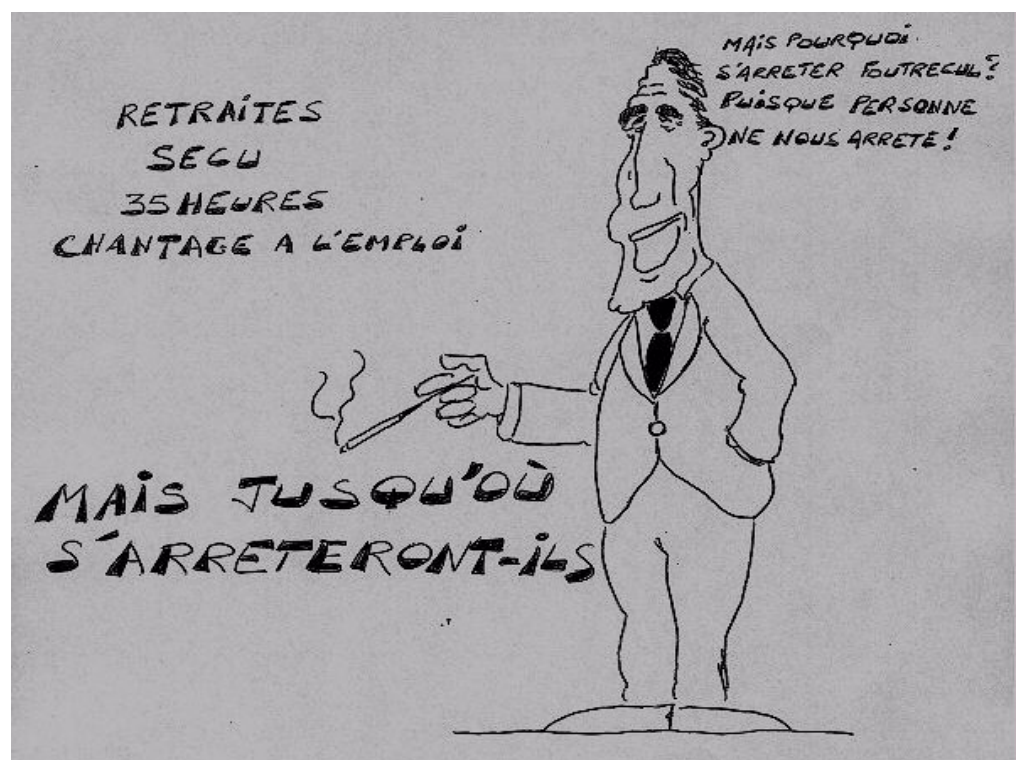 RETRAiTES
SECU
35 HEURES
CHANTAGE A L'EMPLOi
MAiS POURQUOi
S'ARRETER FOUTRECUL?
PUiSQUE PERSONNE
NE NOUS ARRETE!
MAiS JUSQU'OÙ
S'ARRETERONT-iLS